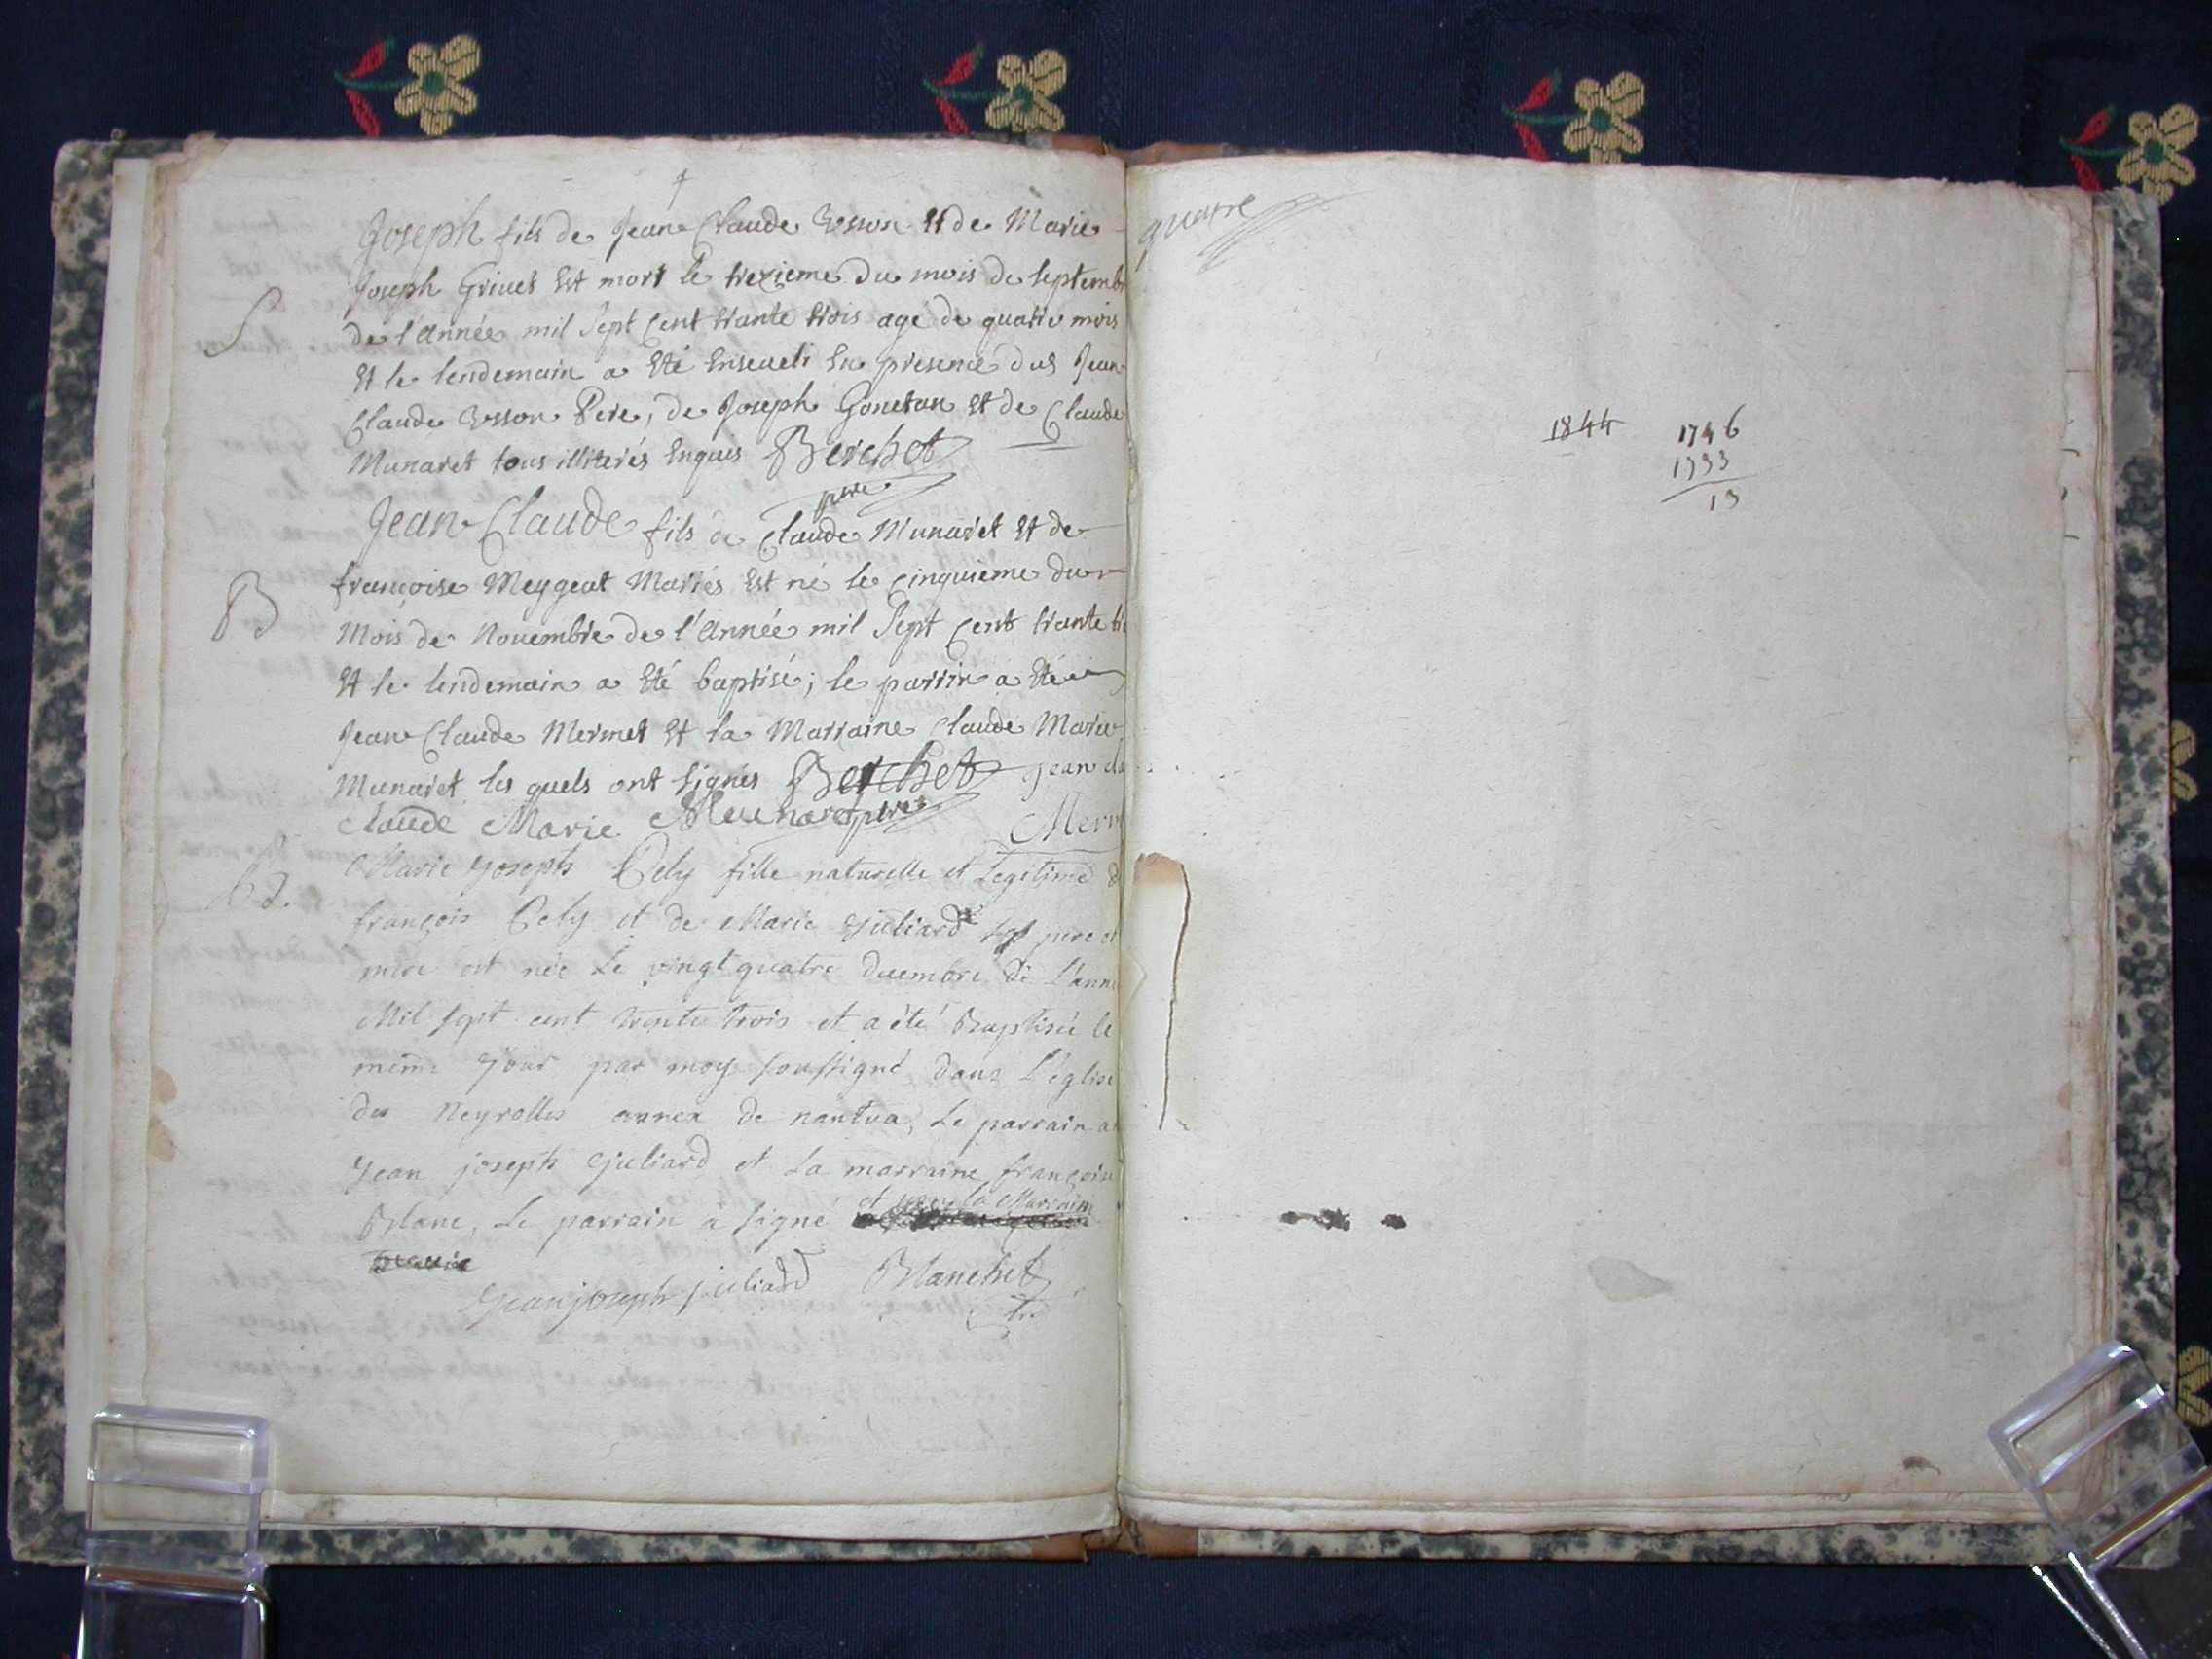 Joseph fils de Jean Claude Esson Et de Marie
Joseph Griuet Est mort le trezieme du mois de septembr
de l'année mil sept cent trante trois agé de quatre mois
Et le lendemain a Eté Enseueli En presence dud Jean
Claude Esson Pere, de Joseph Gonetan Et de Claude
Munaret tous illiterés Enquis Berchet
S
ptre
Jean Claude fils de Claude Munaret Et de
françoise Meygeat Mariés Est né le cinquieme du
Mois de Nouembre de l'année mil sept cent trante tr
B
Et le lendemain a Eté baptisé; le parrin a Eté
Jean Claude Mermet Et la Marraine Claude Marie
Munaret les quels ont signés Berchet Jean cla
Claude Marie Meunaret ptre Merm
Marie Joseph Pely fille naturelle et Legitime d
B d.
françois Pely et de Marie Juliard ses pere et
mere est née Le vingt quatre decembre de L'anne
Mil sept cent trente trois et a été Baptisée le
meme jour par moy soussigné dans L'eglise
des Neyrolles annex de nantua, Le parrain a
Jean joseph Juliard et La marraine françoise
et la Marraine
Blanc, Le parrain à signé
Jean joseph juliard Blanchet
quatre
1844 1746
1733
13